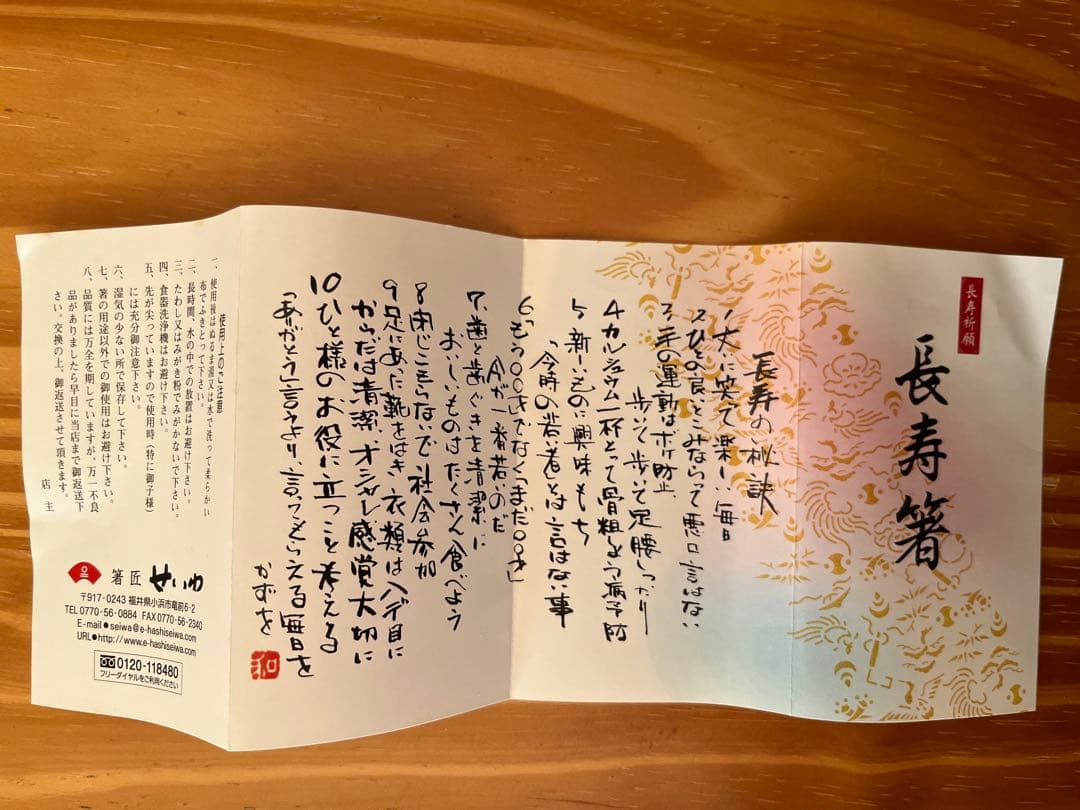 長寿祈願
長寿箸
長寿の秘訣
1大いに笑って楽しい毎日
2ひとの良いとこみならって悪口言はない
3手の運動はボケ防止
歩いて歩いて足腰しっかり
4カルシュウム一杯とって骨粗しょう病予防
5新しいものに興味もち
「今時の若い者」とは言はない事
6「もう〇〇才」でなく「まだ〇〇才」
今が一番若いのだ
7歯と歯ぐきを清潔に
おいしいものはたくさん食べよう
8閉じこもらないで社会参加
9足にあった靴をはき、衣類はハデ目に
からだは清潔、オシャレ感覚大切に
10ひと様のお役に立つこと考える
「ありがとう」言うより、言ってもらえる毎日を
かずを
和
使用上のご注意
一、使用後はぬるま湯又は水で洗って柔らかい
布でふきとって下さい。
二、長時間、水の中での放置はお避け下さい。
三、たわし又はみがき粉でみがかないで下さい。
四、食器洗浄機はお避け下さい。
五、先が尖っていますので使用時(特に御子様)
には充分御注意下さい。
六、湿気の少ない所で保存して下さい。
七、箸の用途以外での御使用はお避け下さい。
八、品質には万全を期していますが、万一不良
品がありましたら早目に当店まで御返送下
さい。交換の上、御返送させて頂きます。
店主
箸匠 せいわ
〒917-0243 福井県小浜市竜前6-2
TEL 0770-56-0884 FAX 0770-56-2340
E-mail●seiwa@e-hashiseiwa.com
URL●http://www.e-hashiseiwa.com
0120-118480
フリーダイヤルをご利用ください